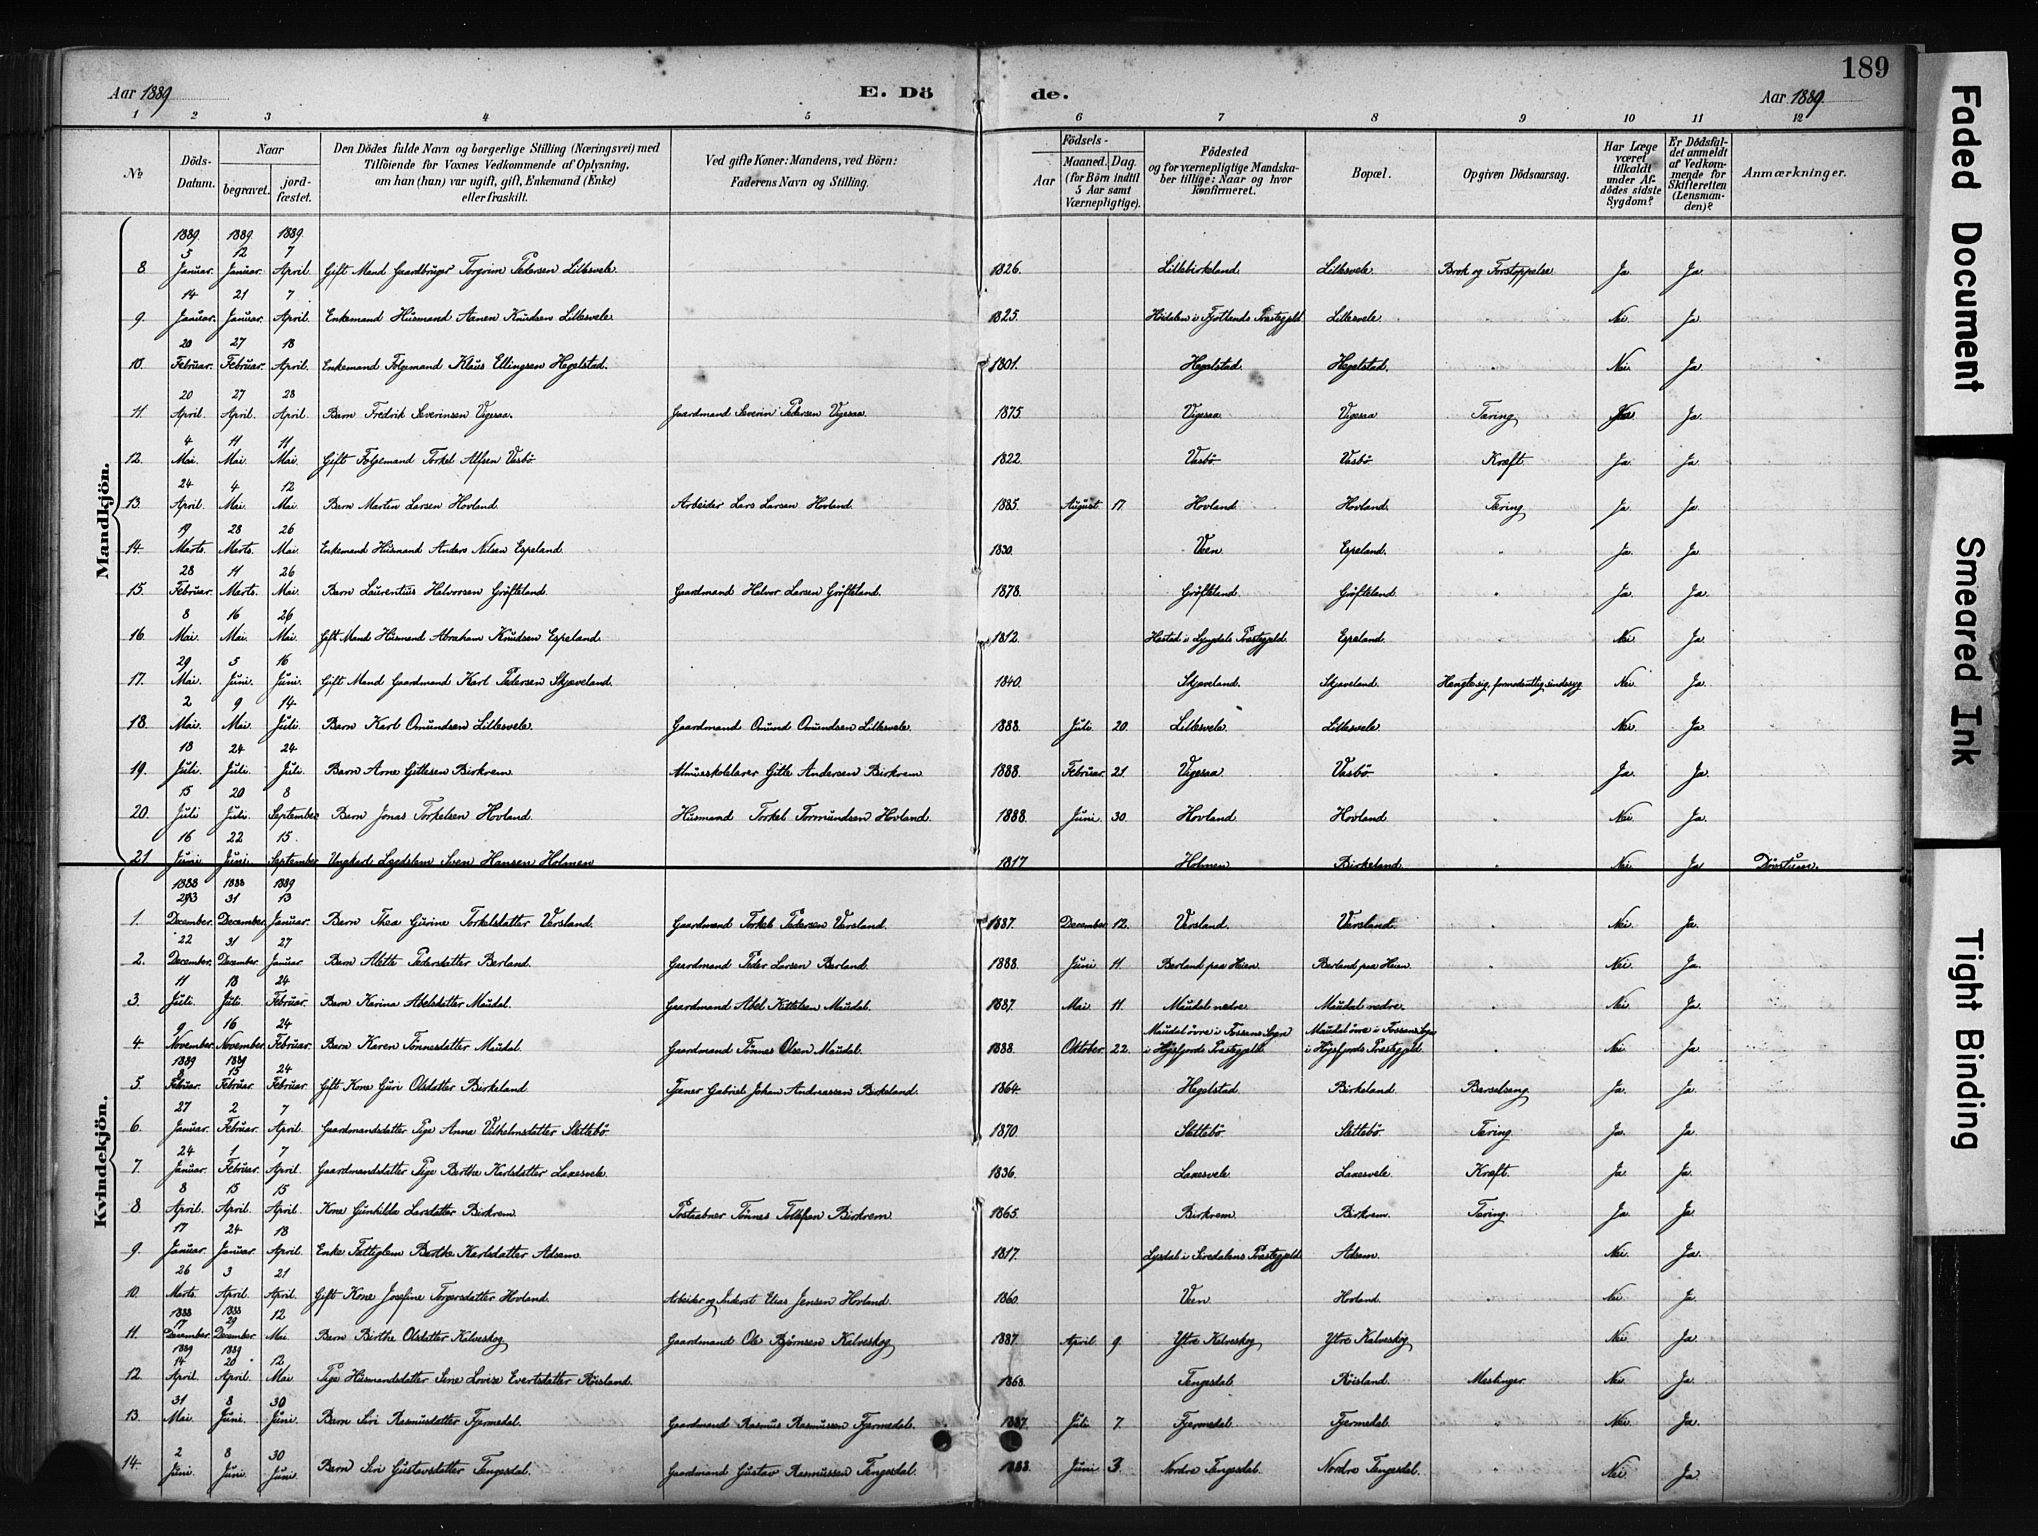 189
Aar 1889 E. Dö de. Aar 1889.
1 2 3 4 5 6 7 8 9 10 11 12
№ Döds-Datum. Naar begravet. jordfæstet. Den Dödes fulde Navn og borgerlige Stilling (Næringsvei) med Tilföiende for Voxnes Vedkommende af Oplysning, om han (hun) var ugift, gift, Enkemand (Enke) eller fraskilt. Ved gifte Koner: Mandens, ved Börn: Faderens Navn og Stilling. Födsels- Aar Maaned. Dag. (for Börn indtil 5 Aar samt Værnepligtige). Födested og for værnepligtige Mandskaber tillige: Naar og hvor Konfirmeret. Bopæl. Opgiven Dödsaarsag. Har Læge været tilkaldt under Afdödes sidste Sygdom? Er Dödsfaldet anmeldt af Vedkommende for Skifteretten (Lensmanden)? Anmærkninger.
Mandkjön.
1889. 1889. 1889.
5 12 7
8. Januar. Januar. April. Gift Mand Gaardbruger Torgrim Pedersen Lillesvele. 1826. Lillebirkeland. Lillesvele. Brok og Forstoppelse Ja Ja.
14 21 7
9. Januar. Januar. April. Enkemand Husmand Aanen Knudsen Lillesvele. 1825. i Fjotlands Præstegjeld Lillesvele. " Nei. Ja
20 27 18
10. Februar. Februar. April. Enkemand Folgemand Klaus Ellingsen Hegelstad. 1801. Hegelstad. Hegelstad. " Nei Ja.
20 27 28
11 April. April. April. Barn Fredrik Severinsen Vigesaa. Gaardmand Severin Pedersen Vigesaa. 1875 Vigesaa Vigesaa Tæring Ja.
4 11 11
12. Mai. Mai. Mai. Gift Folgemand Torkel Alfsen Vasbö 1822. Vasbö Vasbö. Kræft. Ja. Ja
24 4 12
13. April. Mai. Mai. Barn Martin Larsen Hovland. Arbeider Lars Larsen Hovland. 1885. August. 17. Hovland. Hovland. Tæring Ja. Ja.
19 28 26
14. Marts. Marts. Mai. Enkemand Husmand Anders Nilsen Espeland. 1830. Veen Espeland. " Ja. Ja
28 11 26
15. Februar. Marts. Mai. Barn Laurentius Halvorsen Gröfteland. Gaardmand Halvor Larsen Gröfteland. 1878. Gröfteland. Gröfteland. " Ja. Ja.
8 16 26
16. Mai. Mai. Mai. Gift Mand Husmand Abraham Knudsen Espeland. 1812. i Lyngdals Præstegjeld. Espeland. " Nei Ja
29 5 16
17. Mai. Juni. Juni. Gift Mand Gaardmand Karl Pedersen Skjæveland. 1840. Skjæveland. Skjæveland. Hengte sig, formodentlig sindssyg Nei. Ja.
2 9 14
18. Mai. Mai. Juli. Barn Karl Omundsen Lillesvele. Gaardmand Omund Omundsen Lillesvele. 1888. Juli. 20. Lillesvele Lillesvele. " Nei. Ja
18 24 24
19. Juli. Juli. Juli. Barn Arne Gittesen Birkrem Almueskolelærer Gitle Andersen Birkrem 1888. Februar. 21. Vigesaa Vasbö " Ja. Ja
15 20 8
20. Juli Juli. September. Barn Jonas Torkelsen Hovland. Husmand Torkel Tormundsen Hovland. 1888. Juni 30. Hovland. Hovland " Nei. Ja.
16 22 15.
21 Juni Juni. September Ungkarl Lægdslem Sven Hansen Holmen 1817 Holmen Birkeland. " Nei. Ja Dövstum.
Kvindekjön.
1888 1888 1889
31 13
1. December. December. Januar. Barn Thea Gurine Torkelsdatter Versland. Gaardmand Torkel Pedersen Versland. 1887. December. 12. Versland. Versland. " Nei. Ja.
22 31 27
2. December. December. Januar Barn Alette Pedersdatter Berland. Gaardmand Peder Larsen Berland. 1888. Juni 11. Berland paa Heien. Berland paa Heien. " Nei. Ja.
11 18 24
3. Juli. Juli. Februar. Barn Karina Abelsdatter Maudal. Gaardmand Abel Kittelsen Maudal. 1887. Mai 11. Maudal nedre. Maudal nedre. " Nei. Ja
9 16 24
4. November. November. Februar. Barn Karen Tönnesdatter Maudal. Gaardmand Tönnes Olsen Maudal. 1888. Oktober. 22. Maudal övre i Fossans Sogn i Höjsfjords Præstegjeld. Maudal övre i Fossans Sogn i Höjsfjords Præstegjeld. " Nei. Ja
1889 1889
8 15 24
5. Februar. Februar Februar. Gift Kone Guri Olsdatter Birkeland. Tjener Gabriel Johan Andreassen Birkeland. 1864. Hegelstad. Birkeland. Barselseng Ja. Ja.
27 2 7
6. Januar. Februar. April. Gaardmandsdatter Pige Anna Vilhelmsdatter Slettebö 1870. Slettebö. Slettebö. Tæring. Ja. Ja.
24 1 7
7. Januar. Februar. April. Gaardmandsdatter Pige Berthe Karlsdatter Laxesvele. 1836. Laxesvele. Laxesvele. Kræft. Ja. Ja.
8 15 15
8 April. April. April. Kone Gunhilda Larsdatter Birkrem. Postaabner Tönnes Tollefsen Birkrem 1865. Birkrem. Birkrem. Tæring. Ja Ja.
17 24 18
9. Januar. Januar. April. Enke Fattiglem Berthe Karlsdatter Adsem. 1817. i Siredalens Præstegjeld. Adsem. Nei. Ja.
26 3 21
10. Marts. April. April. Gift Kone Josefine Torgersdatter Hovland. Arbeider og Inderst Elias Jensen Hovland. 1860. Veen Hovland. " Nei. Ja.
1888 1888
17 29 12
11. December. December Mai Barn Birthe Olsdatter Kalveskog Gaardmand Ole Bjørnsen Kalveskog 1887. April 9 Ytre Kalveskog Ytre Kalveskog Nei. Ja.
1889 1889
14 20 12
12. April. April. Mai Pige Husmandsdatter Sine Lovise Evertsdatter Röisland. 1868. Tengesdal. Röisland. Meslinger. Nei. Ja.
31 8 30
13. Mai. Juni. Juni. Barn Siri Rasmusdatter Fjermedal. Gaardmand Rasmus Rasmussen Fjermedal. 1887. Juli 7 Fjermedal. Fjermedal. " Nei. Ja.
2 8 30
14. Juni. Juni. Juni. Barn Siri Gustavsdatter Tengesdal. Gaardmand Gustav Rasmussen Tengesdal. 1888. Juni 3. Nordre Tengesdal. Nordre Tengesdal. " Nei. Ja
Faded Document
Smeared Ink
Tight Binding